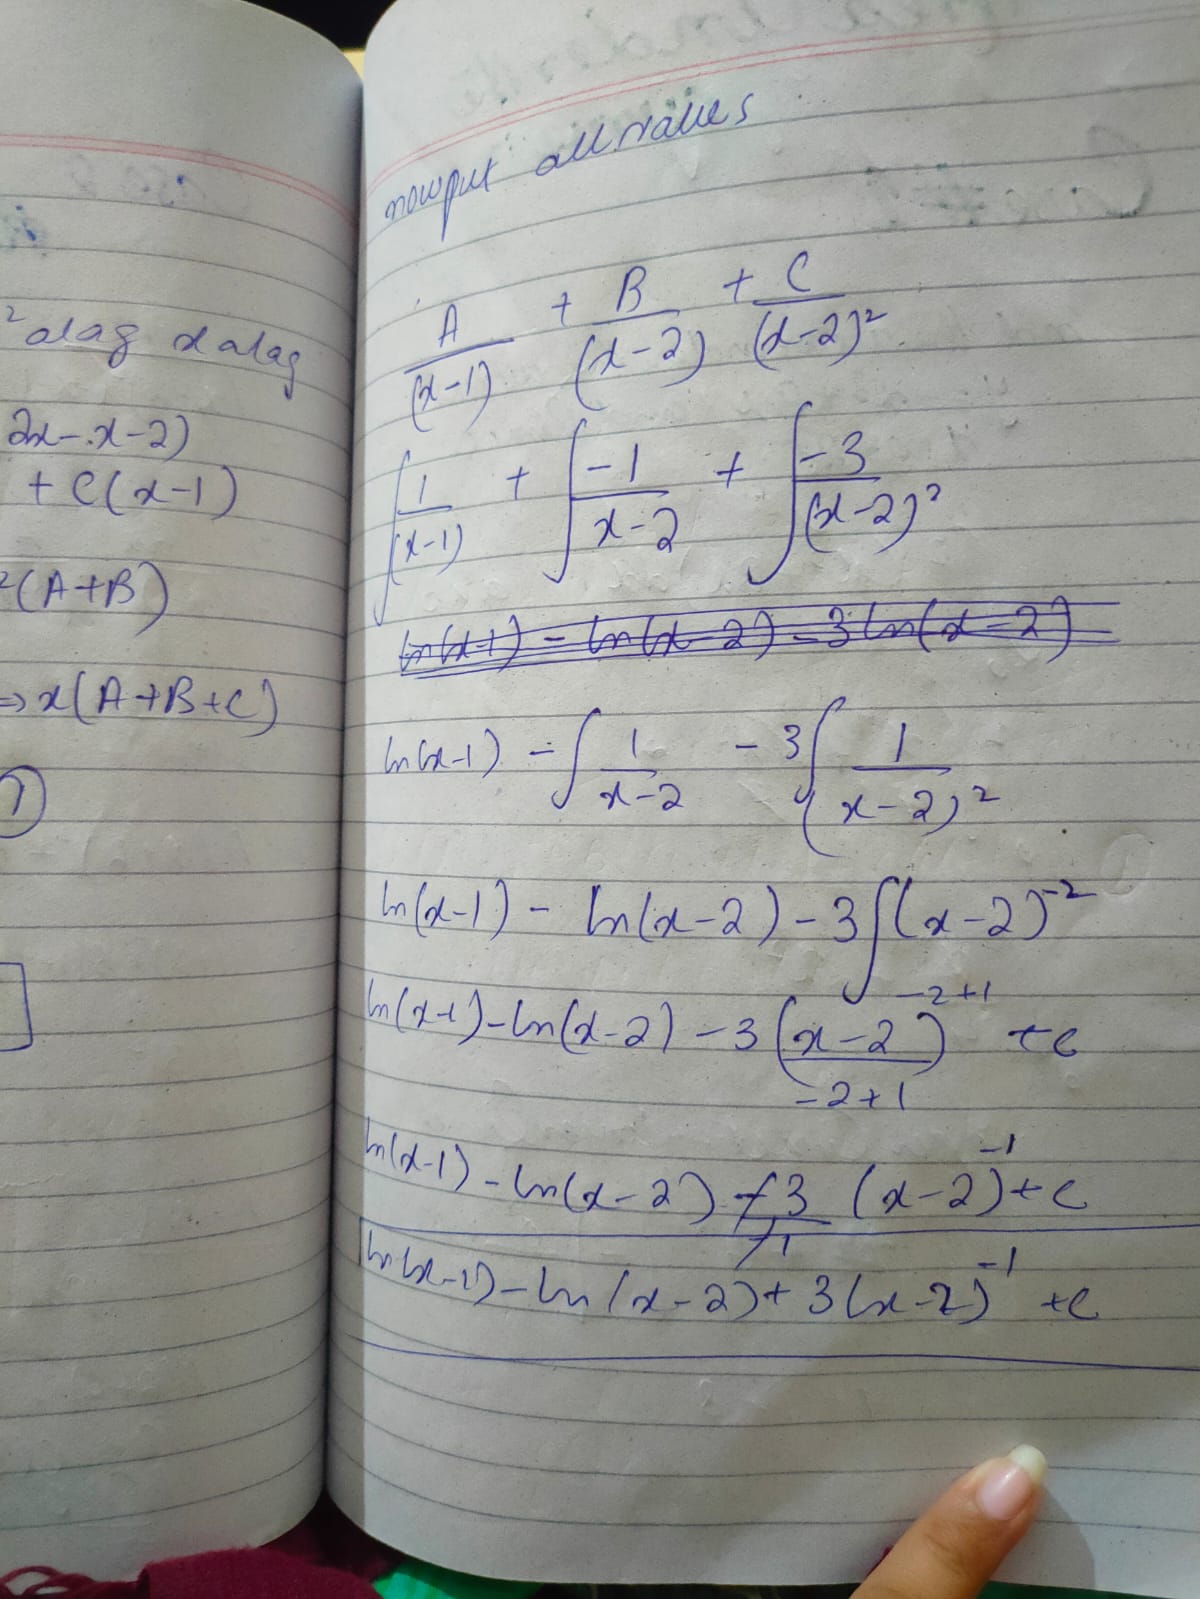 ² alag x alag
2x-x-2)
+ C(x-1)
²(A+B)
⇒ x(A+B+C)
now put all values
A/(x-1) + B/(x-2) + C/(x-2)²
∫1/(x-1) + ∫-1/x-2 + ∫-3/(x-2)²
ln(x-1) - ln(x-2) - 3 ln(x-2)
ln(x-1) - ∫1/x-2 - 3∫1/(x-2)²
ln(x-1) - ln(x-2) - 3∫(x-2)⁻²
ln(x-1) - ln(x-2) - 3(x-2)⁻²⁺¹/-2+1 + c
ln(x-1) - ln(x-2) -3/-1 (x-2)⁻¹ + c
ln(x-1) - ln(x-2) + 3(x-2)⁻¹ + c